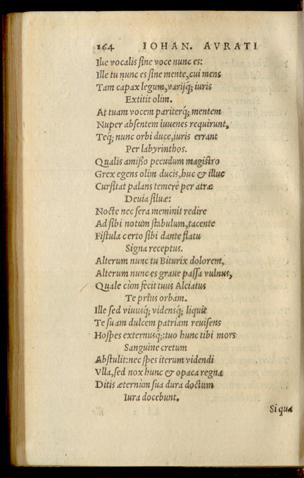 164 IOHAN. AVRATI
Ille vocalis sine voce nunc es:
Ille tu nunc es sine mente, cui mens
Tam capax legum, varijq́; iuris
Extitit olim.
At tuam vocem pariterq́; mentem
Nuper absentem iuuenes requirunt,
Teq́; nunc orbi duce, iuris errant
Per labyrinthos.
Qualis amisso pecudum magistro
Grex egens olim ducis, huc & illuc
Cursitat palans temerè per atræ
Deuia siluæ:
Nocte nec sera meminit redire
Ad sibi notum stabulum, tacente
Fistula certo sibi dante flatu
Signa receptus.
Alterum nunc tu Biturix dolorem,
Alterum nunc es graue passa vulnus,
Quale cùm fecit tuus Alciatus
Te prius orbam.
Ille sed viuusq́; vidensq́; liquit
Te suam dulcem patriam reuisens
Hospes externusq́;: tuo hunc tibi mors
Sanguine cretum
Abstulit: nec spes iterum videndi
Vlla, sed nox hunc & opaca regna
Ditis æternùm sua dura doctum
Iura docebunt.
Si qua